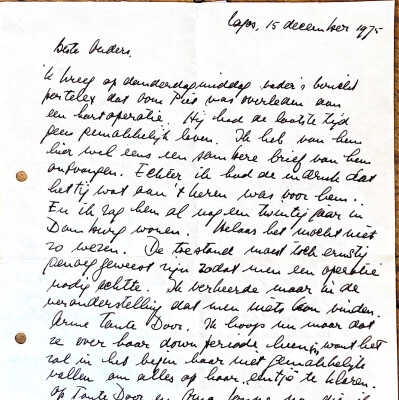 Lagos, 15 december 1975
Beste Ouders.
Ik kreeg op donderdagmiddag vader's bericht
per telex dat oom Piet was overleden aan
een hartoperatie. Hij had de laatste tijd
geen gemakkelijk leven. Ik heb van hem
hier wel eens een sombere brief van hem
ontvangen. Echter ik had de indruk dat
het tij wat aan 't keren was voor hem..
En ik zag hem al nog een twintig jaar in
wonen. Helaas het mocht niet
zo wezen. De toestand moest toch ernstig
genoeg geweest zijn zodat men een operatie
nodig achtte. Ik verkeerde maar in de
veronderstelling dat men niets kon vinden.
Arme Tante Door. Ik hoop nu maar dat
ze over haar down periode heen is, want het
zal in het begin haar niet gemakkelijk
vallen om alles op haar eentje te klaren.
op Tante Door en